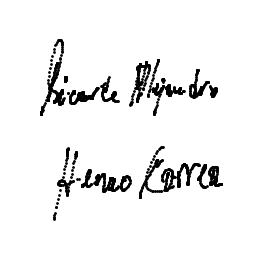 Ricardo Alejandro
Henao Correa